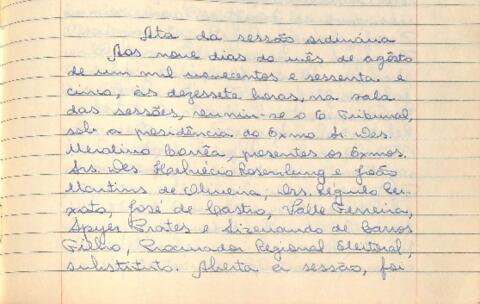 Ata da sessão ordinária
Aos nove dias do mês de agôsto
de um mil novecentos e sessenta e
cinco, às dezessete horas, na sala
das sessões, reuniu-se o E. Tribunal,
sob a presidência do Exmo Sr Des.
Merolino Corrêa, presentes os Exmos.
Srs. Des. Helvécio Rosenburg e João
Martins de Oliveira, Drs. Régulo Pei-
xoto, José de Castro, Valle Ferreira,
Spyer Prates e Sizenando de Barros
Filho, Procurador Regional Eleitoral,
substituto. Aberta a sessão, foi